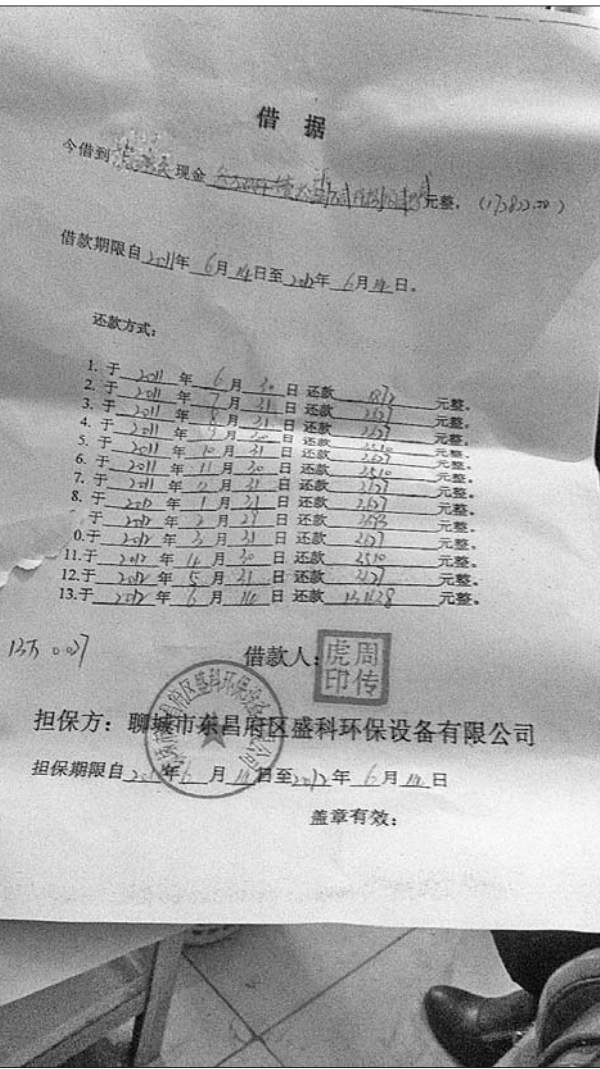 借 据
今借到 现金 元整。
借款期限自2011年6月14日至2012年6月14日。
还款方式：
1. 于 2011 年 6 月 30 日 还款 元整。
2. 于 2011 年 7 月 31 日 还款 2627 元整。
3. 于 2011 年 8 月 31 日 还款 2627 元整。
4. 于 2011 年 9 月 30 日 还款 2510 元整。
5. 于 2011 年 10 月 31 日 还款 2627 元整。
6. 于 2011 年 11 月 30 日 还款 2510 元整。
7. 于 2011 年 12 月 31 日 还款 2627 元整。
8. 于 2012 年 1 月 31 日 还款 2627 元整。
于 2012 年 2 月 29 日 还款 元整。
0.于 2012 年 3 月 31 日 还款 2627 元整。
11.于 2012 年 4 月 30 日 还款 2510 元整。
12.于 2012 年 5 月 31 日 还款 2627 元整。
13.于 2012 年 6 月 14 日 还款 元整。
13万 0.027
借款人：
周传虎印
担保方：聊城市东昌府区盛科环保设备有限公司
担保期限自 年6月14日至2012年6月14日
盖章有效：